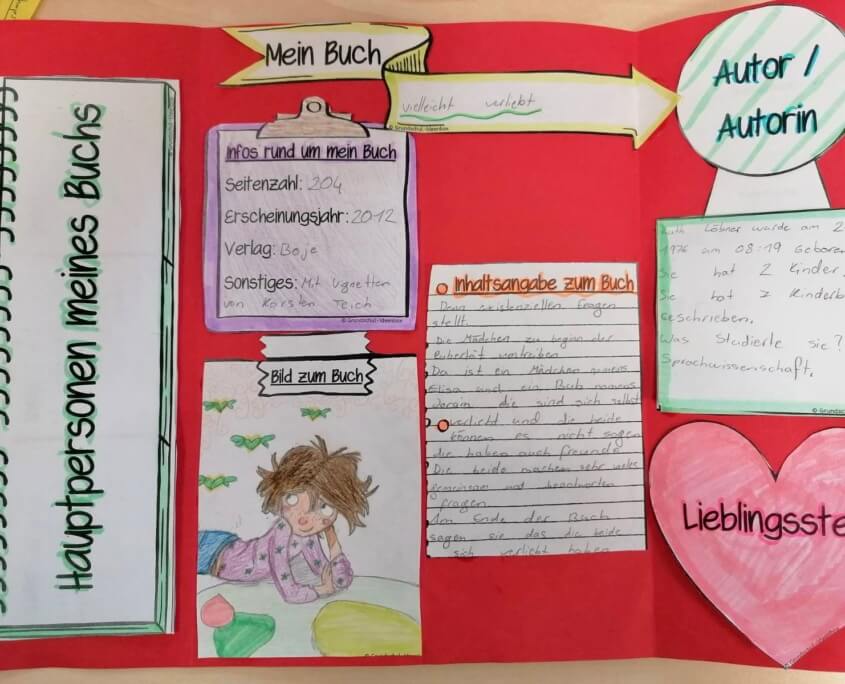 Hauptpersonen meines Buchs
Mein Buch
vielleicht verliebt
© Grundschul-Ideenbox
Infos rund um mein Buch
Seitenzahl: 204
Erscheinungsjahr: 2012
Verlag: Boje
Sonstiges: Mit Vignetten
von Karsten Teich
© Grundschul-Ideenbox
Bild zum Buch
Inhaltsangabe zum Buch
Denn existenzellen fragen
stellt.
Die Mädchen zu beginn der
Pubertät
Da ist ein Mädchen namens
Elisa und ein Bub namens
die sind sich selbst
verliebt und die beide
können es nicht sagen
die haben auch freunde
Die beide machen sehr vieles
gemeinsam und beantworten
fragen
Am Ende der Buch
sagen sie das die beide
sich verliebt haben
Autor /
Autorin
Löbner wurde am 2
1976 am 08:19 Geboren
Sie hat 2 Kinder
Sie hat 7 Kinderb
Geschrieben.
Was Studierte sie?
Sprachwissenschaft.
© Grundschul-Ideenbox
Lieblingsste